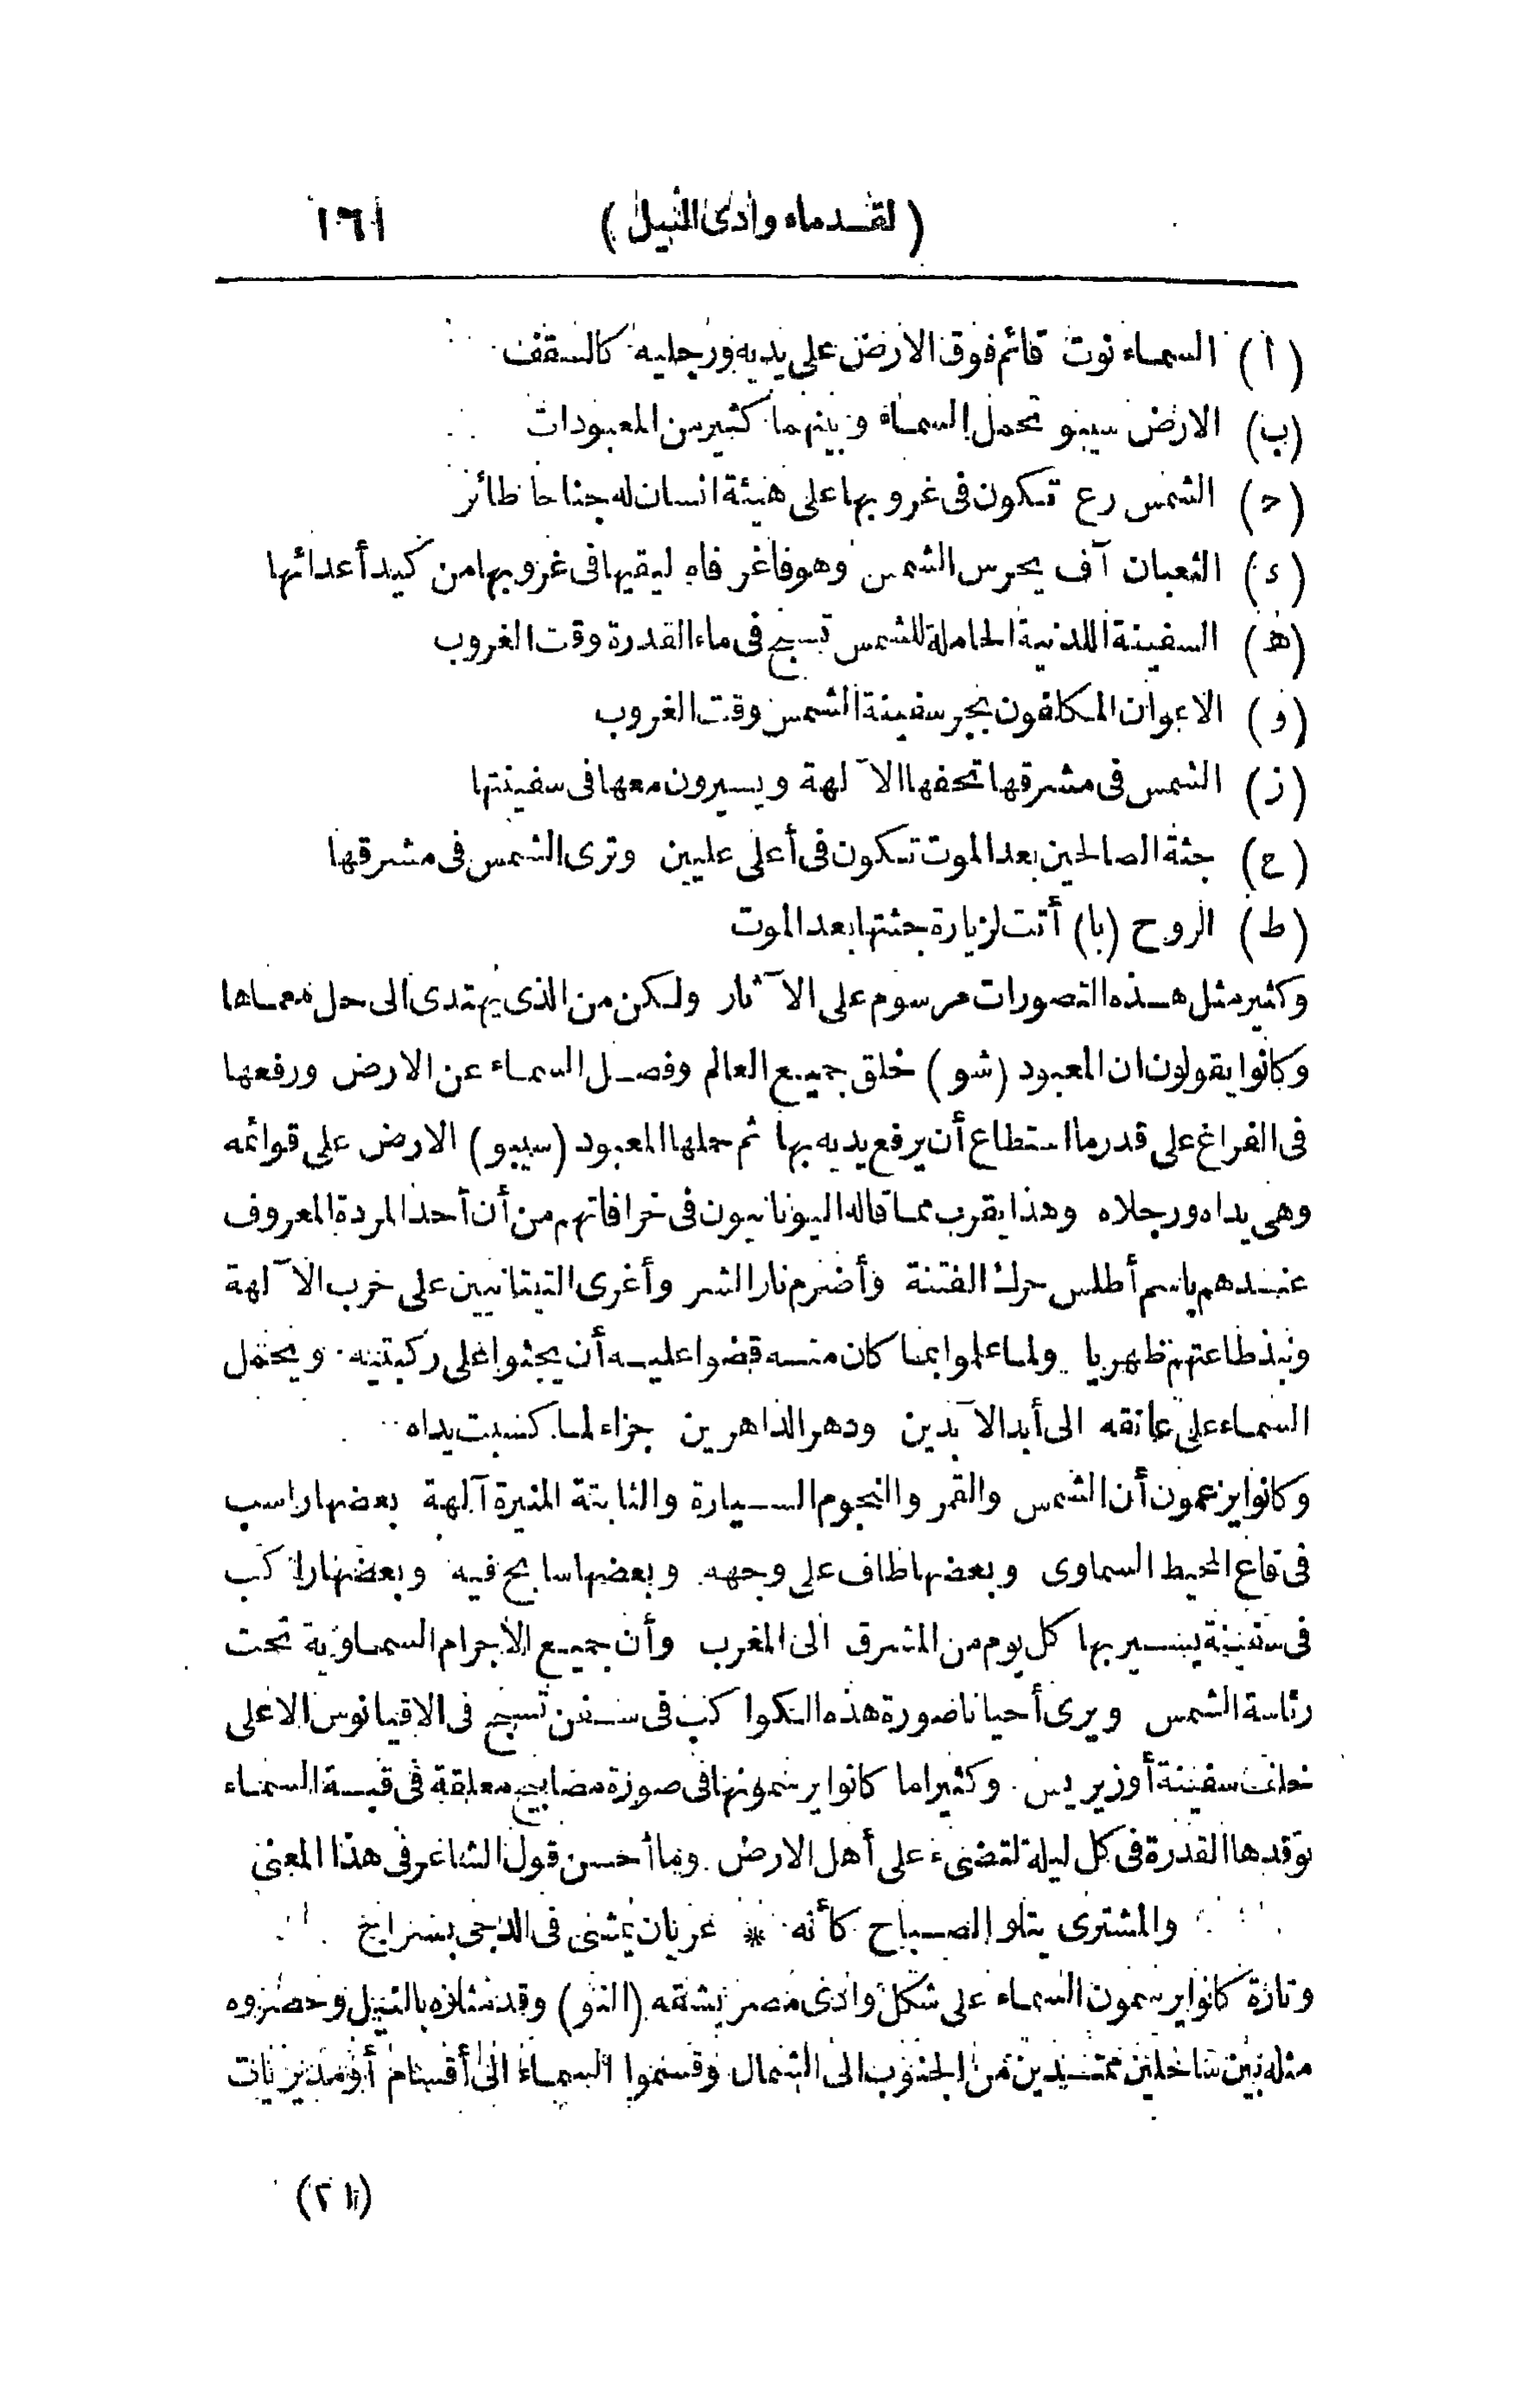 (لقدماء وادى النيل) ١٦١
(ا) السماء نوت قائم فوق الارض على يديه ورجليه كالسقف
(ب) الارض سيبو تحمل السماء وبينهما كثير من المعبودات
(ح) الشمس رع تكون فى غروبها على هيئة انسان له جناحا طائر
(ء) الثعبان آف يحرس الشمس وهو فاغر فاه ليقيها فى غروبها من كيد أعدائها
(هـ) السفينة اللدنية الحاملة للشمس تسبح فى ماء القدرة وقت الغروب
(و) الاعوان المكلفون بجر سفينة الشمس وقت الغروب
(ز) الشمس فى مشرقها تحفها الآلهة ويسيرون معها فى سفينتها
(ح) جثة الصالحين بعد الموت تكون فى أعلى عليين وترى الشمس فى مشرقها
(ط) الروح (با) أتت لزيارة جثتها بعد الموت
وكثير مثل هذه التصورات مرسوم على الآثار ولكن من الذى يهتدى الى حل معماها
وكانوا يقولون ان المعبود (شو) خلق جميع العالم وفصل السماء عن الارض ورفعها
فى الفراغ على قدر ما استطاع أن يرفع يديه بها ثم حملها المعبود (سيبو) الارض على قوائمه
وهى يداه ورجلاه وهذا يقرب مما قاله اليونانيون فى خرافاتهم من أن أحد المردة المعروف
عندهم باسم أطلس حرك الفتنة وأضرم نار الشر وأغرى التيتانيين على حرب الآلهة
ونبذ طاعتهم ظهريا ولما علموا بما كان منه قضوا عليه أن يجثوا على ركبتيه ويحمل
السماء على عاتقه الى أبد الآبدين ودهر الداهرين جزاء لما كسبت يداه
وكانوا يزعمون أن الشمس والقمر والنجوم السيارة والثابتة المنيرة آلهة بعضها راسب
فى قاع المحيط السماوى وبعضها طاف على وجهه وبعضها سابح فيه وبعضها راكب
فى سفينة يسير بها كل يوم من المشرق الى المغرب وأن جميع الأجرام السماوية تحت
رئاسة الشمس ويرى أحيانا صورة هذه الكواكب فى سفن تسبح فى الاقيانوس الاعلى
خلف سفينة أوزيريس وكثيرا ما كانوا يرسمونها فى صورة مصابيح معلقة فى قبة السماء
توقدها القدرة فى كل ليلة لتضىء على أهل الارض وما أحسن قول الشاعر فى هذا المعنى
والمشترى يتلو الصباح كأنه * عريان يمشى فى الدجى بسراج
وتارة كانوا يرسمون السماء على شكل وادى مصر يشقه (النو) وقد مثلوه بالنيل وحصروه
مثله بين ساحلين ممتدين من الجنوب الى الشمال وقسموا السماء الى أقسام أو مديريات
(٢١)